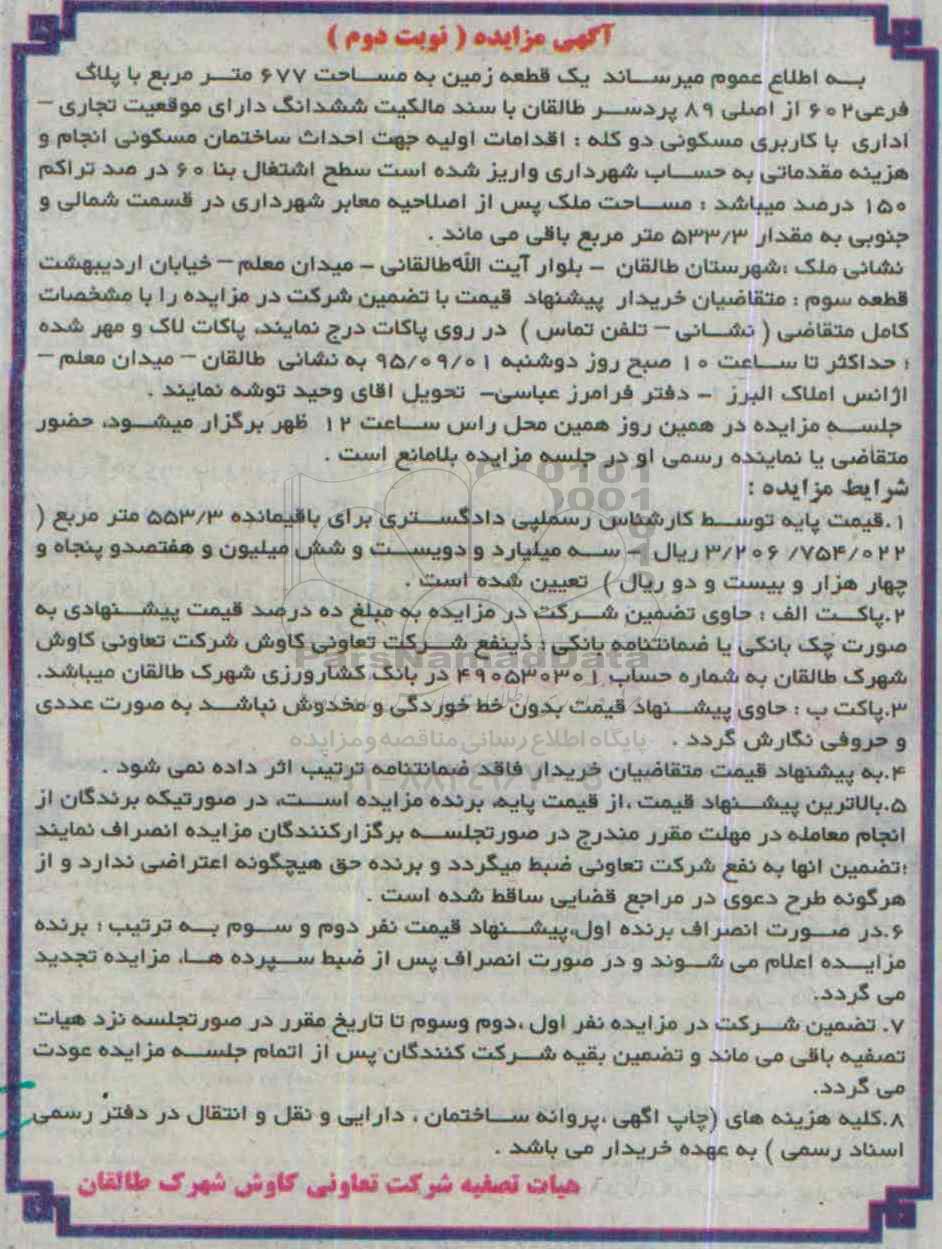 آگهی مزایده ( نوبت دوم )
بـه اطلاع عموم میرسـاند یک قطعه زمین به مسـاحت ۶۷۷ متـر مربع با پلاک
فرعی۶۰۲ از اصلی ۸۹ پردسـر طالقان با سند مالکیت ششدانگ دارای موقعیت تجاری –
اداری با کاربری مسکونی دو کله ؛ اقدامات اولیه جهت احداث ساختمان مسکونی انجام و
هزینه مقدماتی به حسـاب شهرداری واریز شده است سطح اشتغال بنا ۶۰ در صد تراکم
۱۵۰ درصد میباشد ؛ مسـاحت ملک پس از اصلاحیه معابر شهرداری در قسمت شمالی و
جنوبی به مقدار ۵۳۳/۳ متر مربع باقی می ماند .
نشانی ملک ؛شهرستان طالقان – بلوار آیت اللهطالقانی – میدان معلم – خیابان اردیبهشت
قطعه سوم ؛ متقاضیان خریدار پیشنهاد قیمت با تضمین شرکت در مزایده را با مشخصات
کامل متقاضی ( نشـانی – تلفن تماس ) در روی پاکات درج نمایند، پاکات لاک و مهر شده
؛ حداکثر تا سـاعت ۱۰ صبح روز دوشنبه ۹۵/۰۹/۰۱ به نشانی طالقان – میدان معلم –
اژانس املاک البرز – دفتر فرامرز عباسی– تحویل اقای وحید توشه نمایند .
جلسـه مزایده در همین روز همین محل راس سـاعت ۱۲ ظهر برگزار میشـود، حضور
متقاضی یا نماینده رسمی او در جلسه مزایده بلامانع است .
شرایط مزایده :
۱.قیمت پایه توسـط کارشناس رسملپی دادگسـتری برای باقیمانده ۵۵۳/۳ متر مربع (
۳/۲۰۶ /۷۵۴/۰۲۲ ریال – سـه میلیارد و دویسـت و شش میلیون و هفتصدو پنجاه و
چهار هزار و بیست و دو ریال ) تعیین شده است .
۲.پاکـت الف ؛ حاوی تضمین شـرکت در مزایده به مبلغ ده درصد قیمت پیشـنهادی به
صورت چک بانکی یا ضمانتنامه بانکی ؛ ذینفع شـرکت تعاونی کاوش شرکت تعاونی کاوش
شهرک طالقان به شماره حساب ۴۹۰۵۳۰۳۰۱ در بانک کشاررورزی شهرک طالقان میباشد.
۳.پاکت ب ؛ حاوی پیشـنهاد قیمت بدون خط خوردگی و مخدوش نباشـد به صورت عددی
و حروفی نگارش گردد .
۴.به پیشنهاد قیمت متقاضیان خریدار فاقد ضمانتنامه ترتیب اثر داده نمی شود .
۵.بالاترین پیشـنهاد قیمت ،از قیمت پایه، برنده مزایده اسـت، در صورتیکه برندگان از
انجام معامله در مهلت مقرر مندرج در صورتجلسـه برگزارکنندگان مزایده انصراف نمایند
؛تضمین انها به نفع شرکت تعاونی ضبط میگردد و برنده حق هیچگونه اعتراضی ندارد و از
هرگونه طرح دعوی در مراجع قضایی ساقط شده است .
۶.در صـورت انصراف برنده اول،پیشـنهاد قیمت نفر دوم و سـوم بـه ترتیب ؛ برنده
مزایـده اعلام می شـوند و در صورت انصراف پس از ضبط سـپرده هـا، مزایده تجدید
می گردد.
۷. تضمین شـرکت در مزایده نفر اول ،دوم وسوم تا تاریخ مقرر در صورتجلسه نزد هیات
تصفیه باقی می ماند و تضمین بقیه شـرکت کنندگان پس از اتمام جلسـه مزایده عودت
می گردد.
۸.کلیه هزینه های (چاپ اگهی ،پروانه سـاختمان ، دارایی و نقل و انتقال در دفتر رسمی
اسناد رسمی ) به عهده خریدار می باشد .
هیات تصفیه شرکت تعاونی کاوش شهرک طالقان
ParsNamadData
پایگاه اطلاع رسانی مناقصه و مزایده